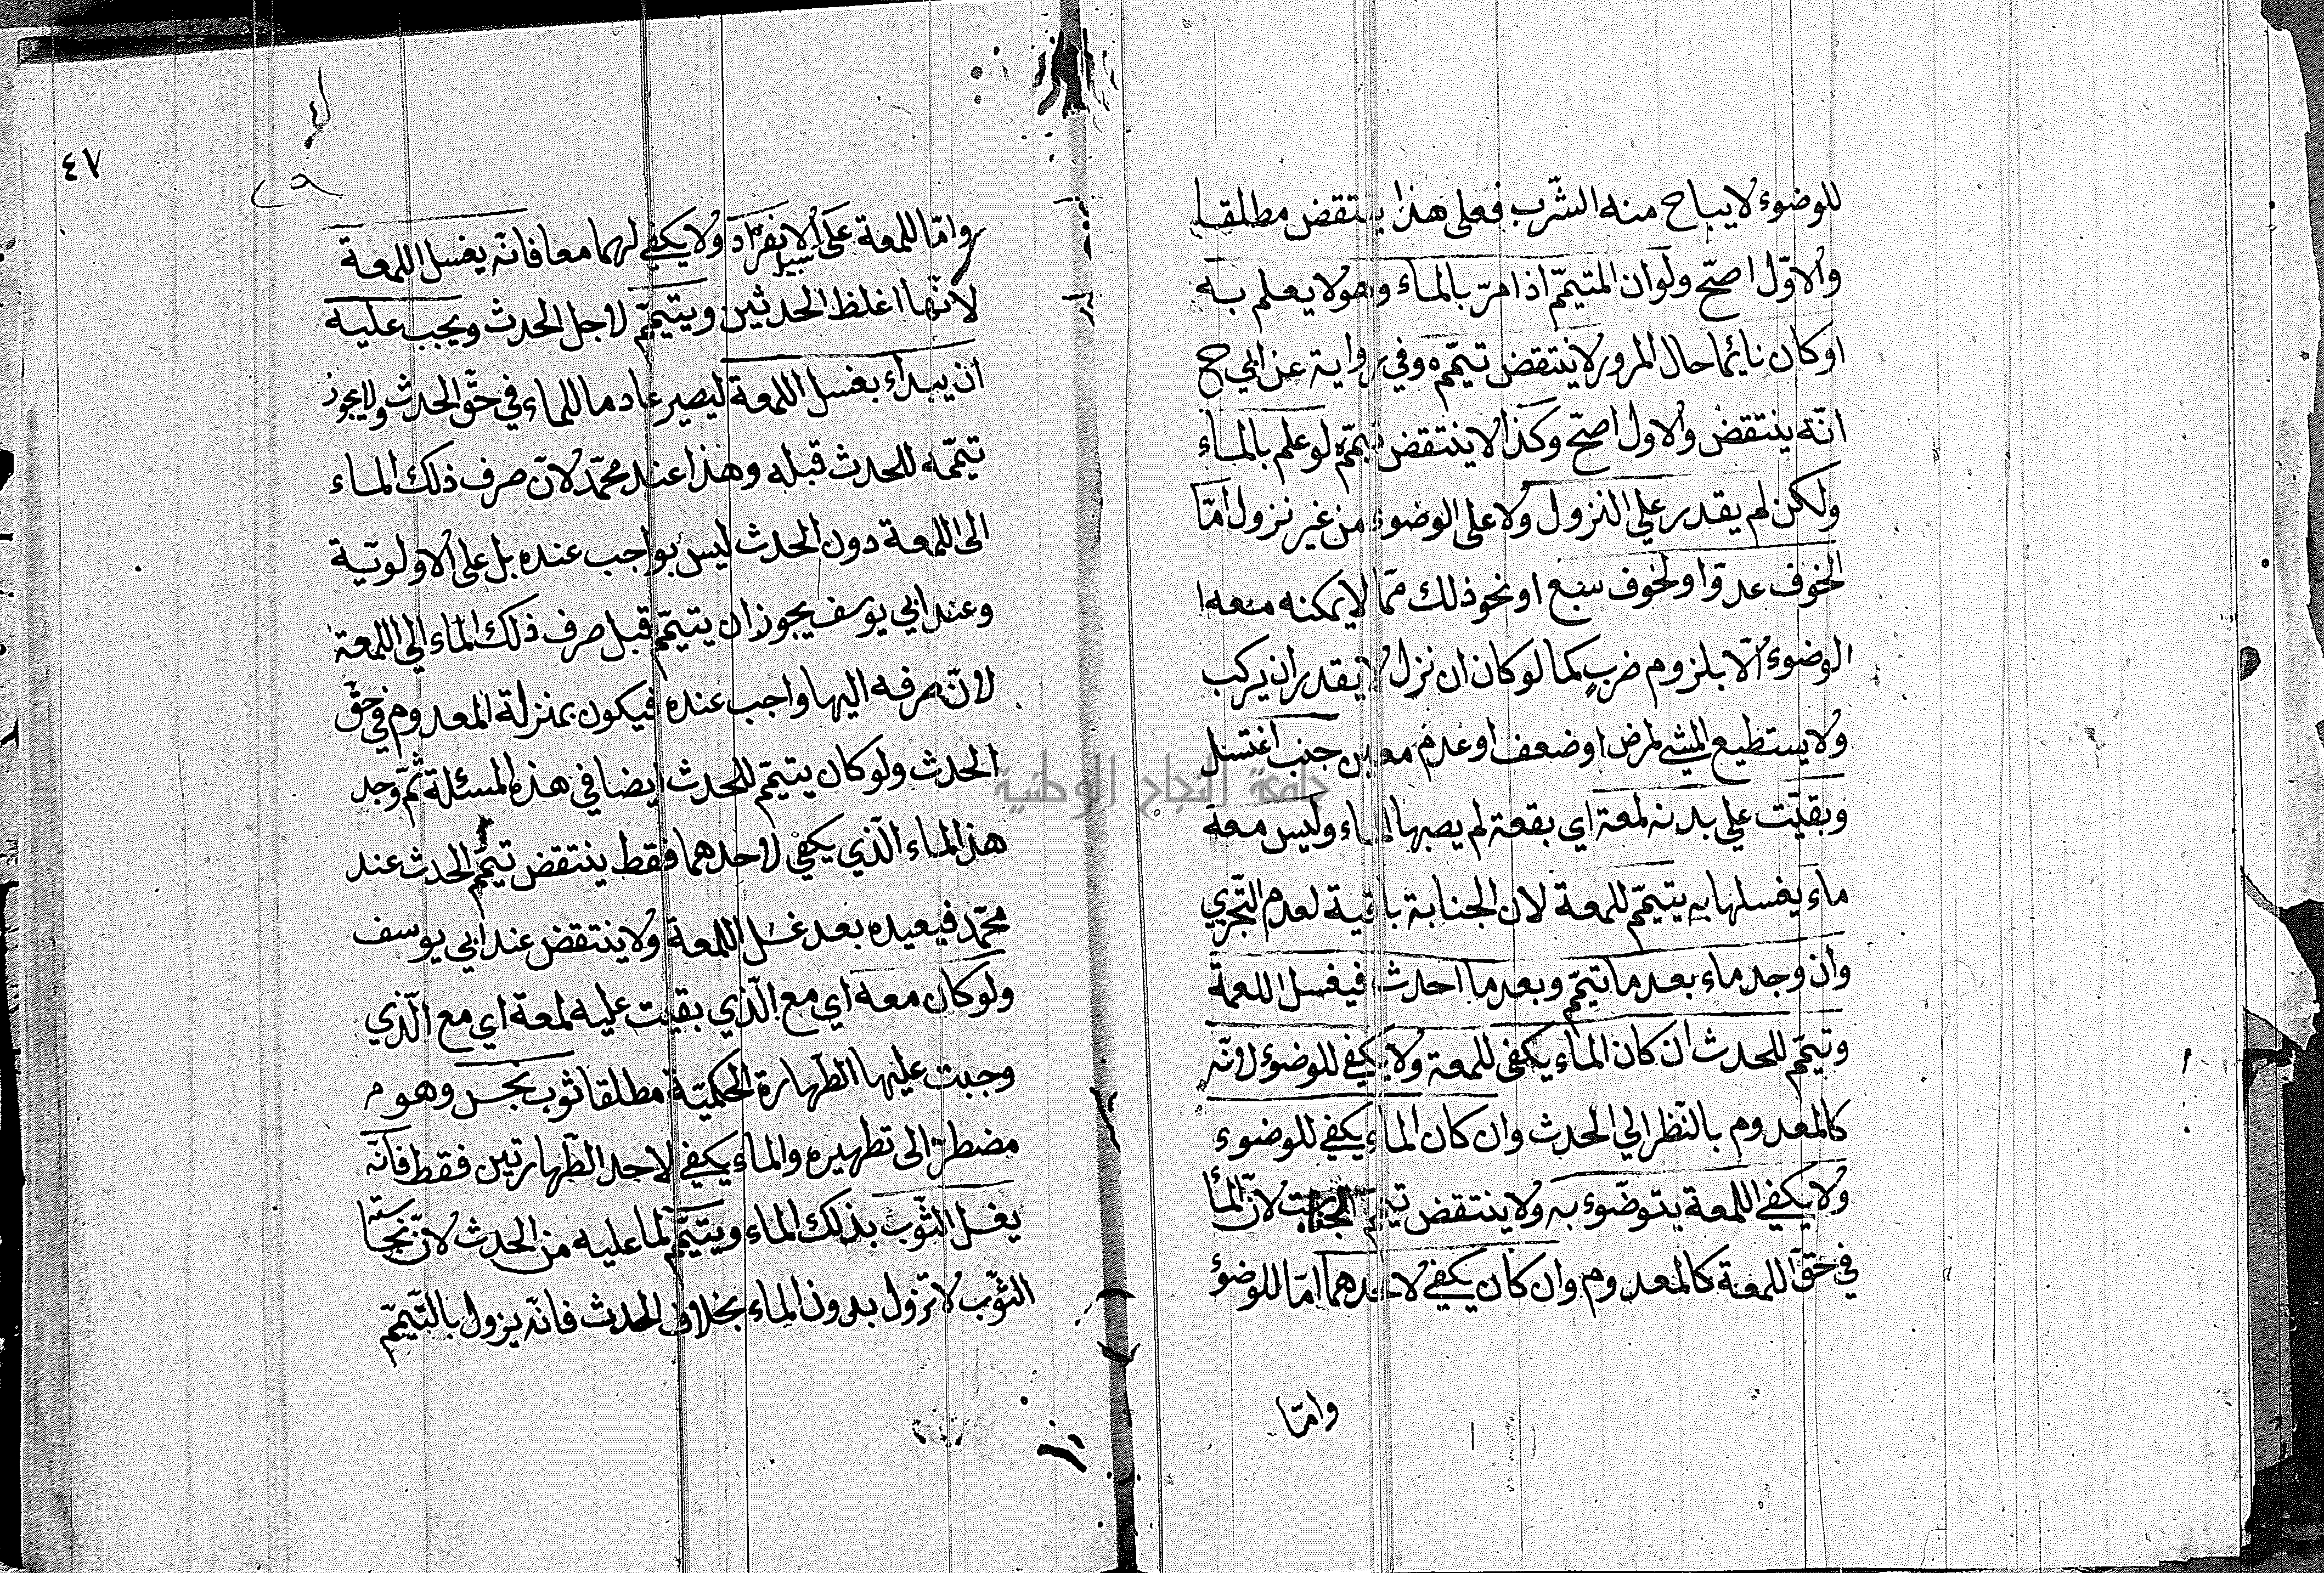 للوضوء لا يباح منه الشّرب فعلى هذا ينتقض مطلقا
والاوّل اصحّ ولو ان المتيمّم اذا مرّ بالماء وهو لا يعلم به
او كان نائما حال المرور لا ينتقض تيمّمه وفي رواية عن ابي ح
انّه ينتقض والاول اصحّ وكذا لا ينتقض تيمّمه لو علم بالماء
ولكن لم يقدر على النزول ولا على الوضوء من غير نزول امّا
الخوف عدوّ او لخوف سبع او نحو ذلك ممّا لا يمكنه معه
الوضوء الّا بلزوم ضرب كما لو كان ان نزل لا يقدر ان يركب
ولا يستطيع المشي لمرض او ضعف او عدم معين جنب اغتسل
وبقيت على بدنه لمعة اي بقعة لم يصبها الماء وليس معه
ماء يغسلها به يتيمّم للمعة لان الجنابة باقية لعدم التّجزي
وان وجد ماء بعد ما تيمّم وبعد ما احدث فيغسل اللمعة
وتيمّم للحدث ان كان الماء يكفى للمعة ولا يكفي للوضوء لانّه
كالمعدوم بالنّظر الي الحدث وان كان الماء يكفي للوضوء
ولا يكفي اللمعة يتوضّوء به ولا ينتقض تيمّم لانّ الماء
في حقّ اللمعة كالمعدوم وان كان يكفي لاحدهما امّا للوضوء
وامّا
٤٧
وامّا للمعة على سبيل الانفراد ولا يكفي لهما معا فانّه يغسل اللمعة
لانّها اغلظ الحدثين ويتيمّم لاجل الحدث ويجب عليه
ان يبداء بغسل اللمعة ليصير عادما للماء في حقّ الحدث ولا يجوز
تيمّمه للحدث قبله وهذا عند محمّد لانّ صرف ذلك الماء
الى اللمعة دون الحدث ليس بواجب عنده بل على الاولويّة
وعند ابي يوسف يجوز ان يتيمّم قبل صرف ذلك الماء الي اللمعة
لانّ صرفه اليها واجب عنده فيكون بمنزلة المعدوم في حقّ
الحدث ولو كان يتيمّم للحدث ايضا في هذه المسئلة ثمّ وجد
هذا الماء الّذي يكفي لاحدهما فقط ينتقض تيمّم الحدث عند
محمّد فيعيده بعد غسل اللمعة ولا ينتقض عند ابي يوسف
ولو كان معه اي مع الّذي بقيت عليه لمعة اي مع الّذي
وجبت عليها الطّهارة الحكميّة مطلقا ثوب نجس وهو م
مضطرّ الى تطهيره والماء يكفي لاحد الطّهارتين فقط فانّه
يغسل الثّوب بذلك الماء ويتيمّم لما عليه من الحدث لانّ نجاسة
الثّوب لا تزول بدون الماء بخلاف الحدث فانّه يزول بالتّيمّم
جامعة النجاح الوطنية